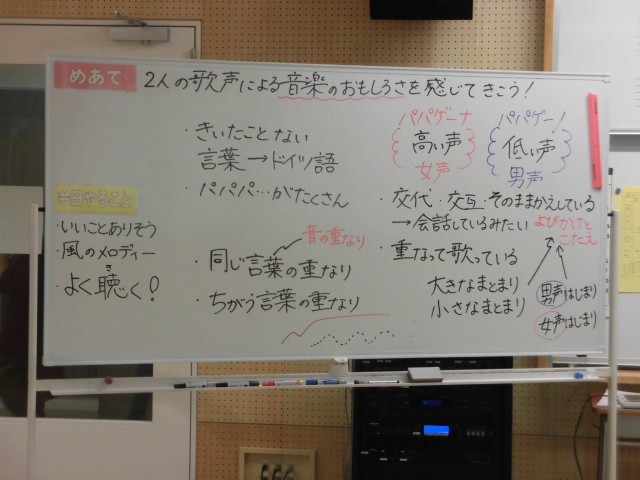 めあて
2人の歌声による音楽のおもしろさを感じてきこう!
今日やること
・いいことありそう
・風のメロディー
・よく聴く!
き
・きいたことない
言葉→ドイツ語
・パパパ…がたくさん
音の重なり
・同じ言葉の重なり
・ちがう言葉の重なり
パパゲーナ
高い声
女声
パパゲーノ
低い声
男声
・交代・交互・そのままかえしている
→会話しているみたい
よびかけと
こたえ
・重なって歌っている
大きなまとまり
小さなまとまり
男声はじまり
女声はじまり